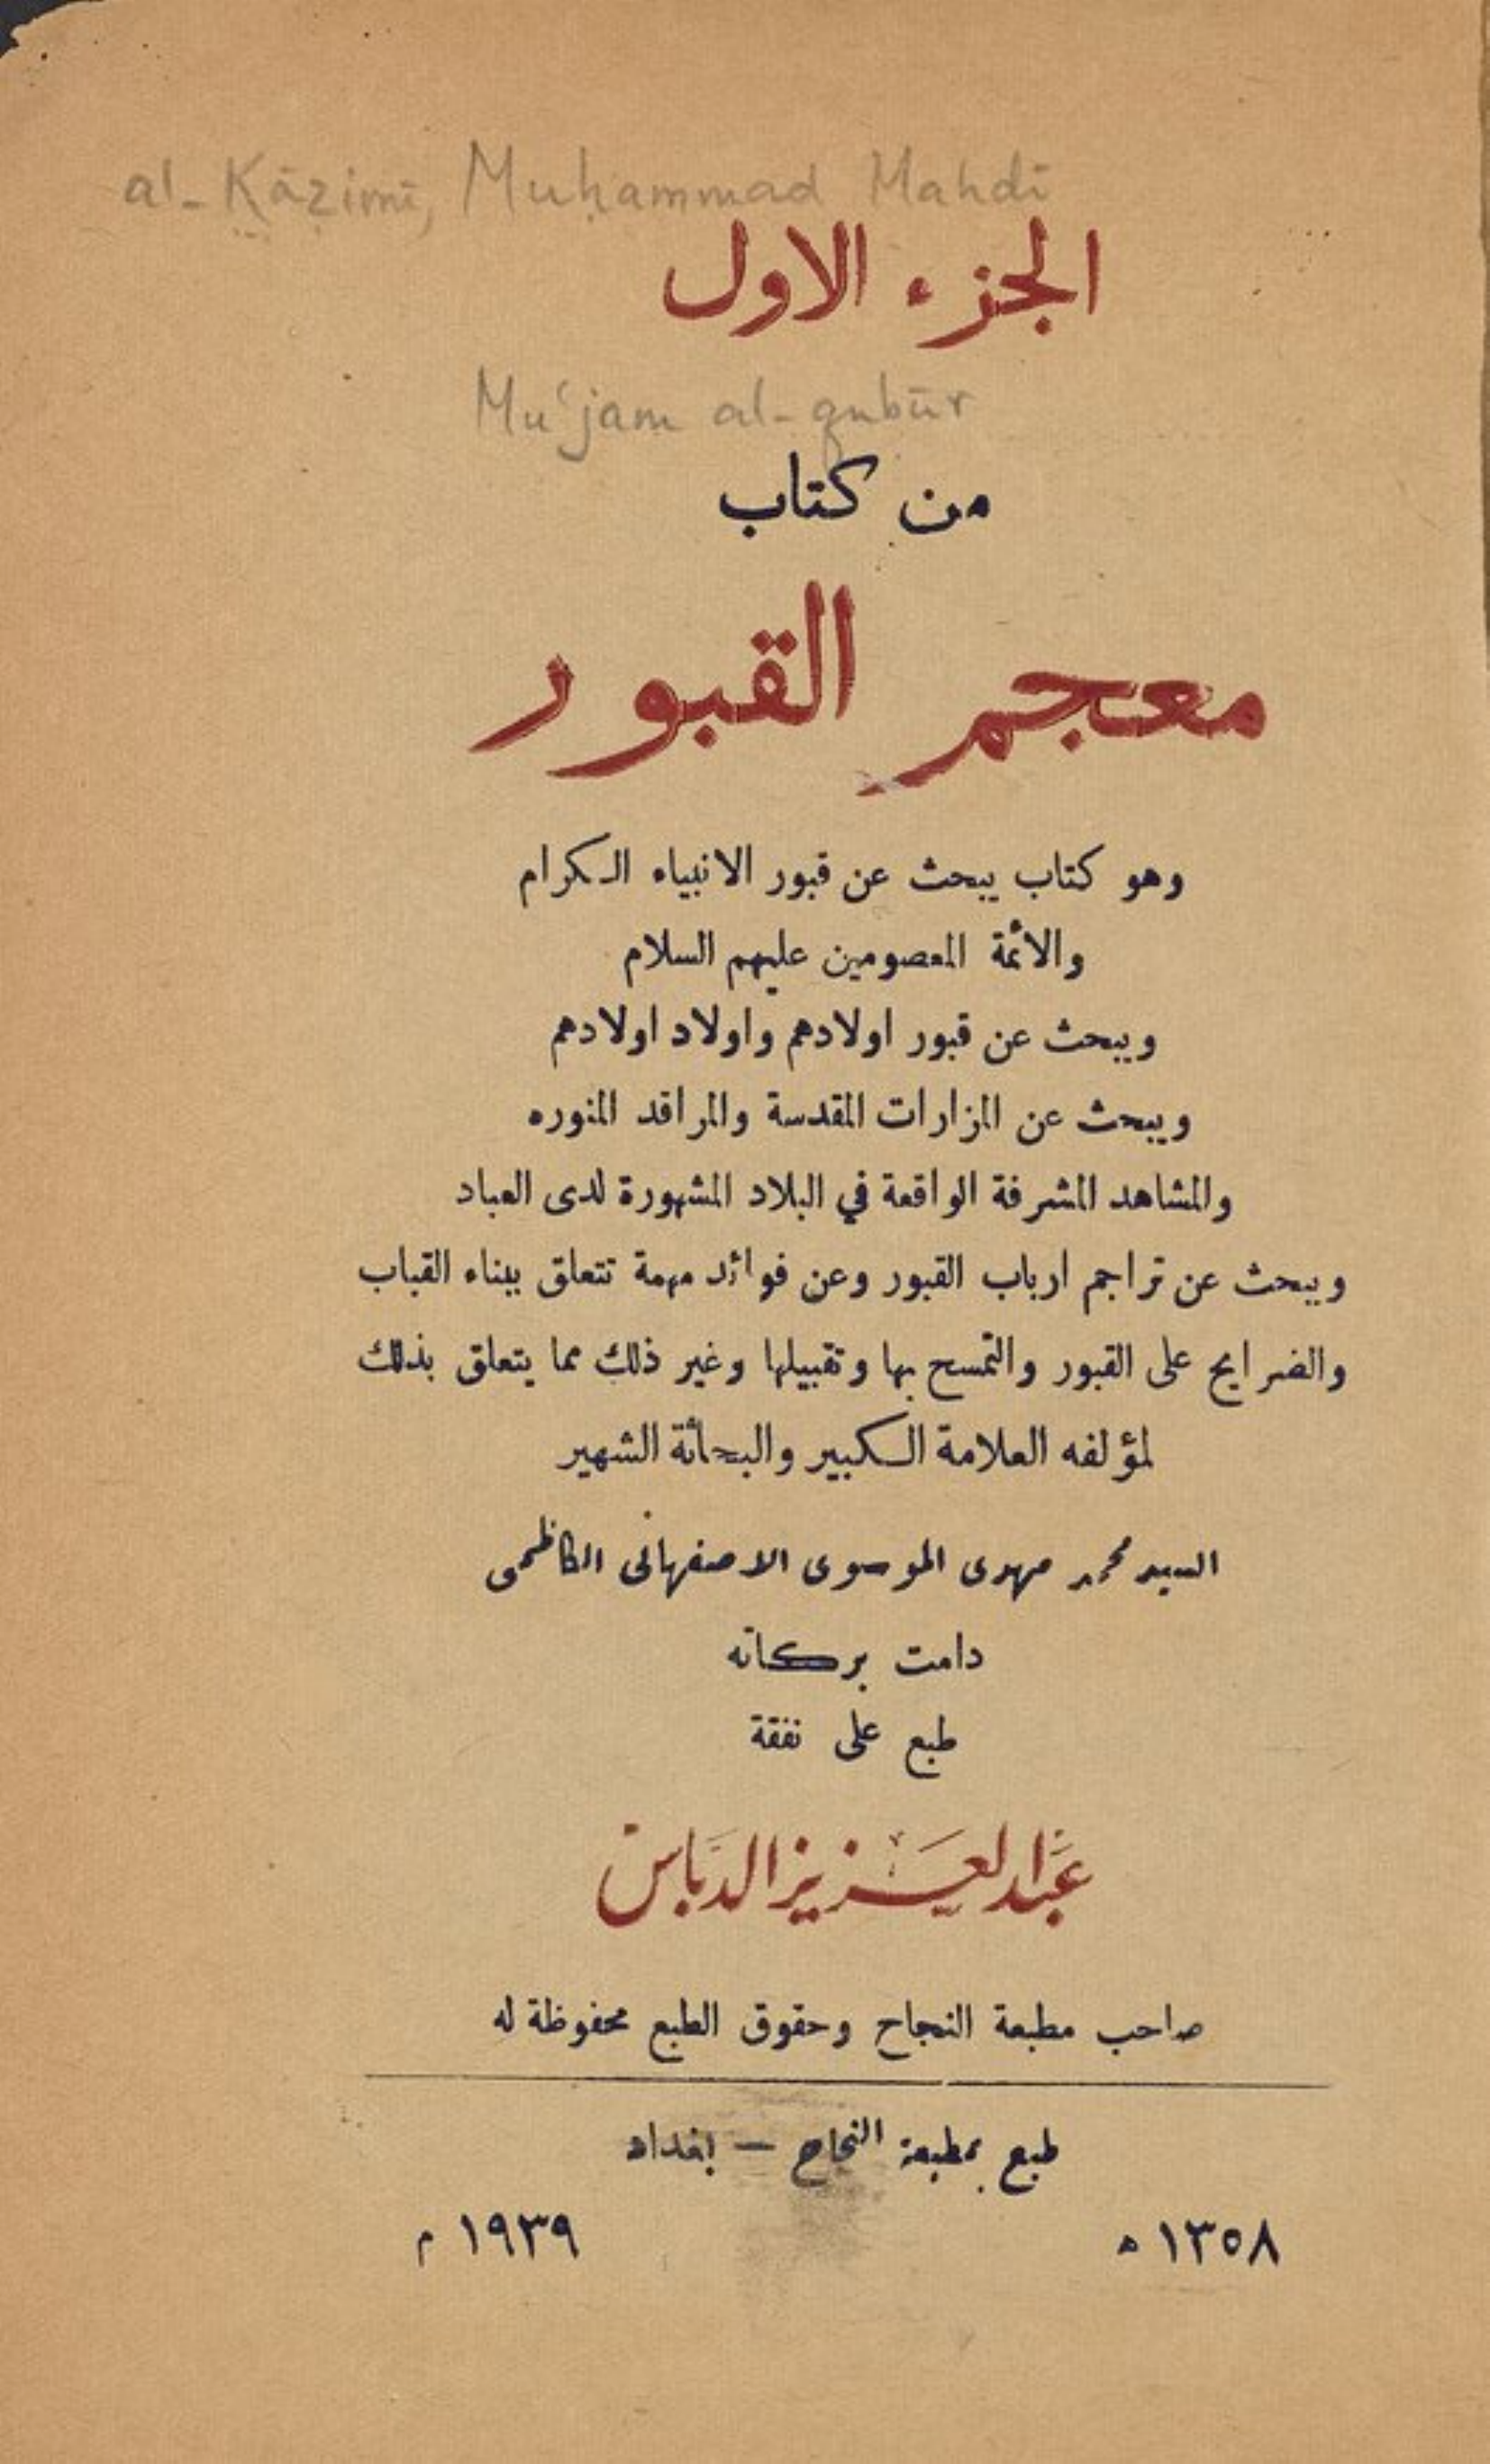 al-Ḳāẓimī, Muḥammad Mahdī
الجزء الاول
Mu‘jam al-qubūr
من كتاب
معجم القبور
وهو كتاب يبحث عن قبور الانبياء الكرام
والائمة المعصومين عليهم السلام
ويبحث عن قبور اولادهم واولاد اولادهم
ويبحث عن المزارات المقدسة والمراقد المنوره
والمشاهد المشرفة الواقعة في البلاد المشهورة لدى العباد
ويبحث عن تراجم ارباب القبور وعن فوائد مهمة تتعلق ببناء القباب
والضرايح على القبور والتمسح بها وتقبيلها وغير ذلك مما يتعلق بذلك
لمؤلفه العلامة الكبير والبحاثة الشهير
السيد محمد مهدى الموسوى الاصفهانى الكاظمى
دامت بركاته
طبع على نفقة
عبد العزيز الدباس
صاحب مطبعة النجاح وحقوق الطبع محفوظة له
طبع بمطبعة النجاح — بغداد
١٣٥٨ ه ١٩٣٩ م